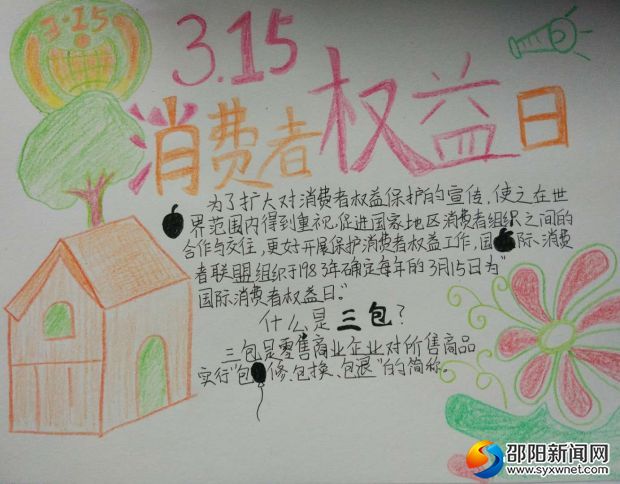 3·15
3.15
消费者权益日
为了扩大对消费者权益保护的宣传，使之在世
界范围内得到重视，促进国家地区消费者组织之间的
合作与交往，更好开展保护消费者权益工作，国际消费
者联盟组织于1983年确定每年的3月15日为“
国际消费者权益日。”
什么是三包？
三包是零售商业企业对所售商品
实行“包修、包换、包退”的简称。
邵阳新闻网
www.syxwnet.com